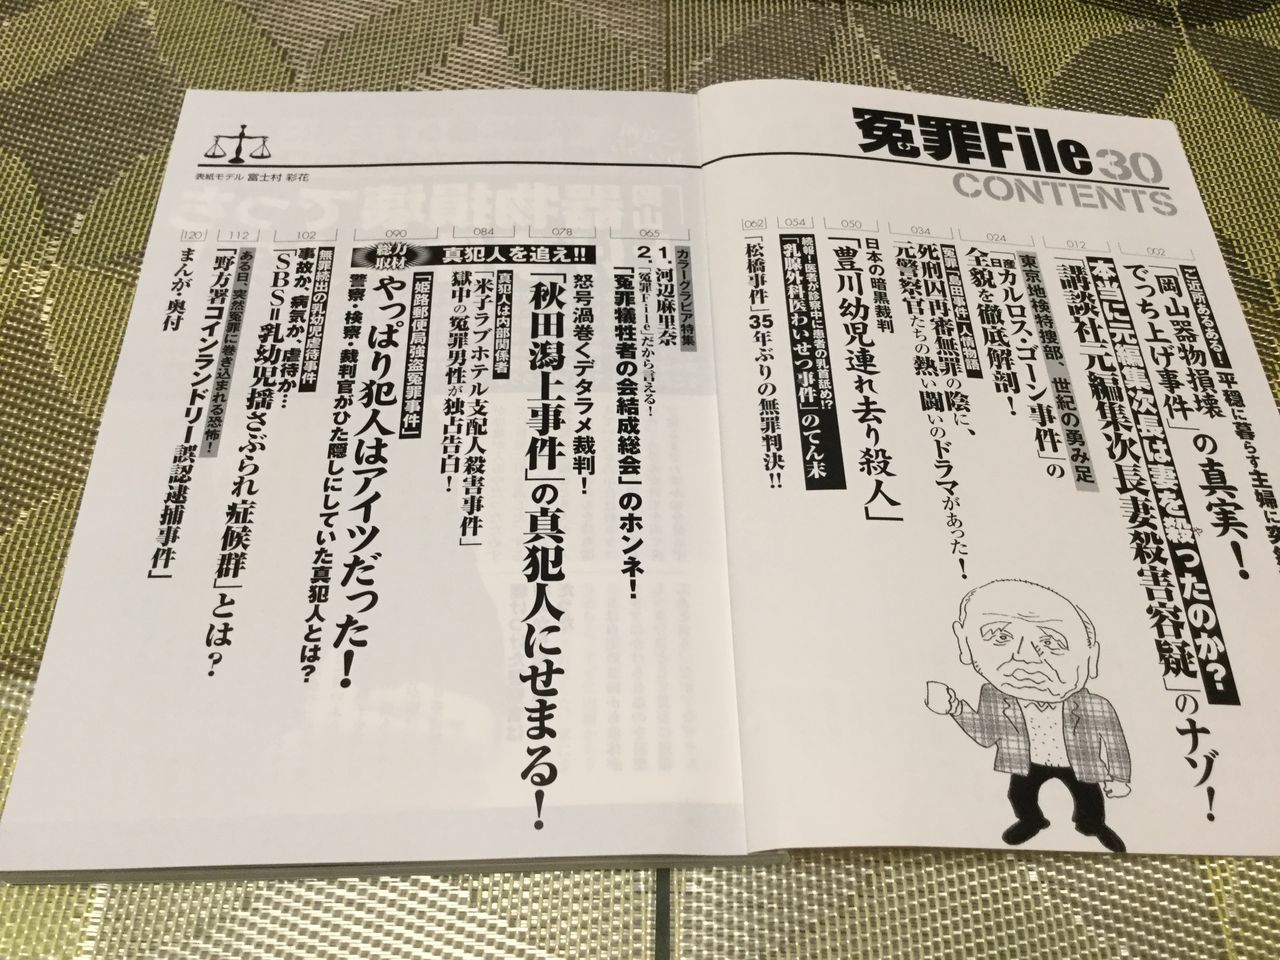 冤罪File30
CONTENTS
002
ご近所あるある！平穏に暮らす主婦に
「岡山器物損壊
でっち上げ事件」の真実！
012
本当に元編集次長は妻を殺ったのか？
「講談社元編集次長妻殺害容疑」のナゾ！
024
東京地検特捜部、世紀の勇み足
日産「カルロス・ゴーン事件」の
全貌を徹底解剖！
034
冤罪「島田事件」人情物語
死刑囚再審無罪の陰に、
元警察官たちの熱い闘いのドラマがあった！
050
日本の暗黒裁判
「豊川幼児連れ去り殺人」
054
続報！医者が診察中に患者の乳首舐め!?
「乳腺外科医わいせつ事件」のてん末
062
「松橋事件」35年ぶりの無罪判決!!
065
カラーグラビア特集
1．河辺麻里奈
2．「冤罪File」だから言える！
「冤罪犠牲者の会結成総会」のホンネ！
真犯人を追え!!
078
怒号渦巻くデタラメ裁判！
「秋田潟上事件」の真犯人にせまる！
084
真犯人は内部関係者
「米子ラブホテル支配人殺害事件」
獄中の冤罪男性が独占告白！
090
総力取材
「姫路郵便局強盗冤罪事件」
やっぱり犯人はアイツだった！
警察・検察・裁判官がひた隠しにしていた真犯人とは？
102
無罪続出の乳幼児虐待事件
事故か、病気か、虐待か…
「SBS＝乳幼児揺さぶられ症候群」とは？
112
ある日、突然冤罪に巻き込まれる恐怖！
「野方署コインランドリー誤認逮捕事件」
120
まんが・奥付
表紙モデル 富士村 彩花